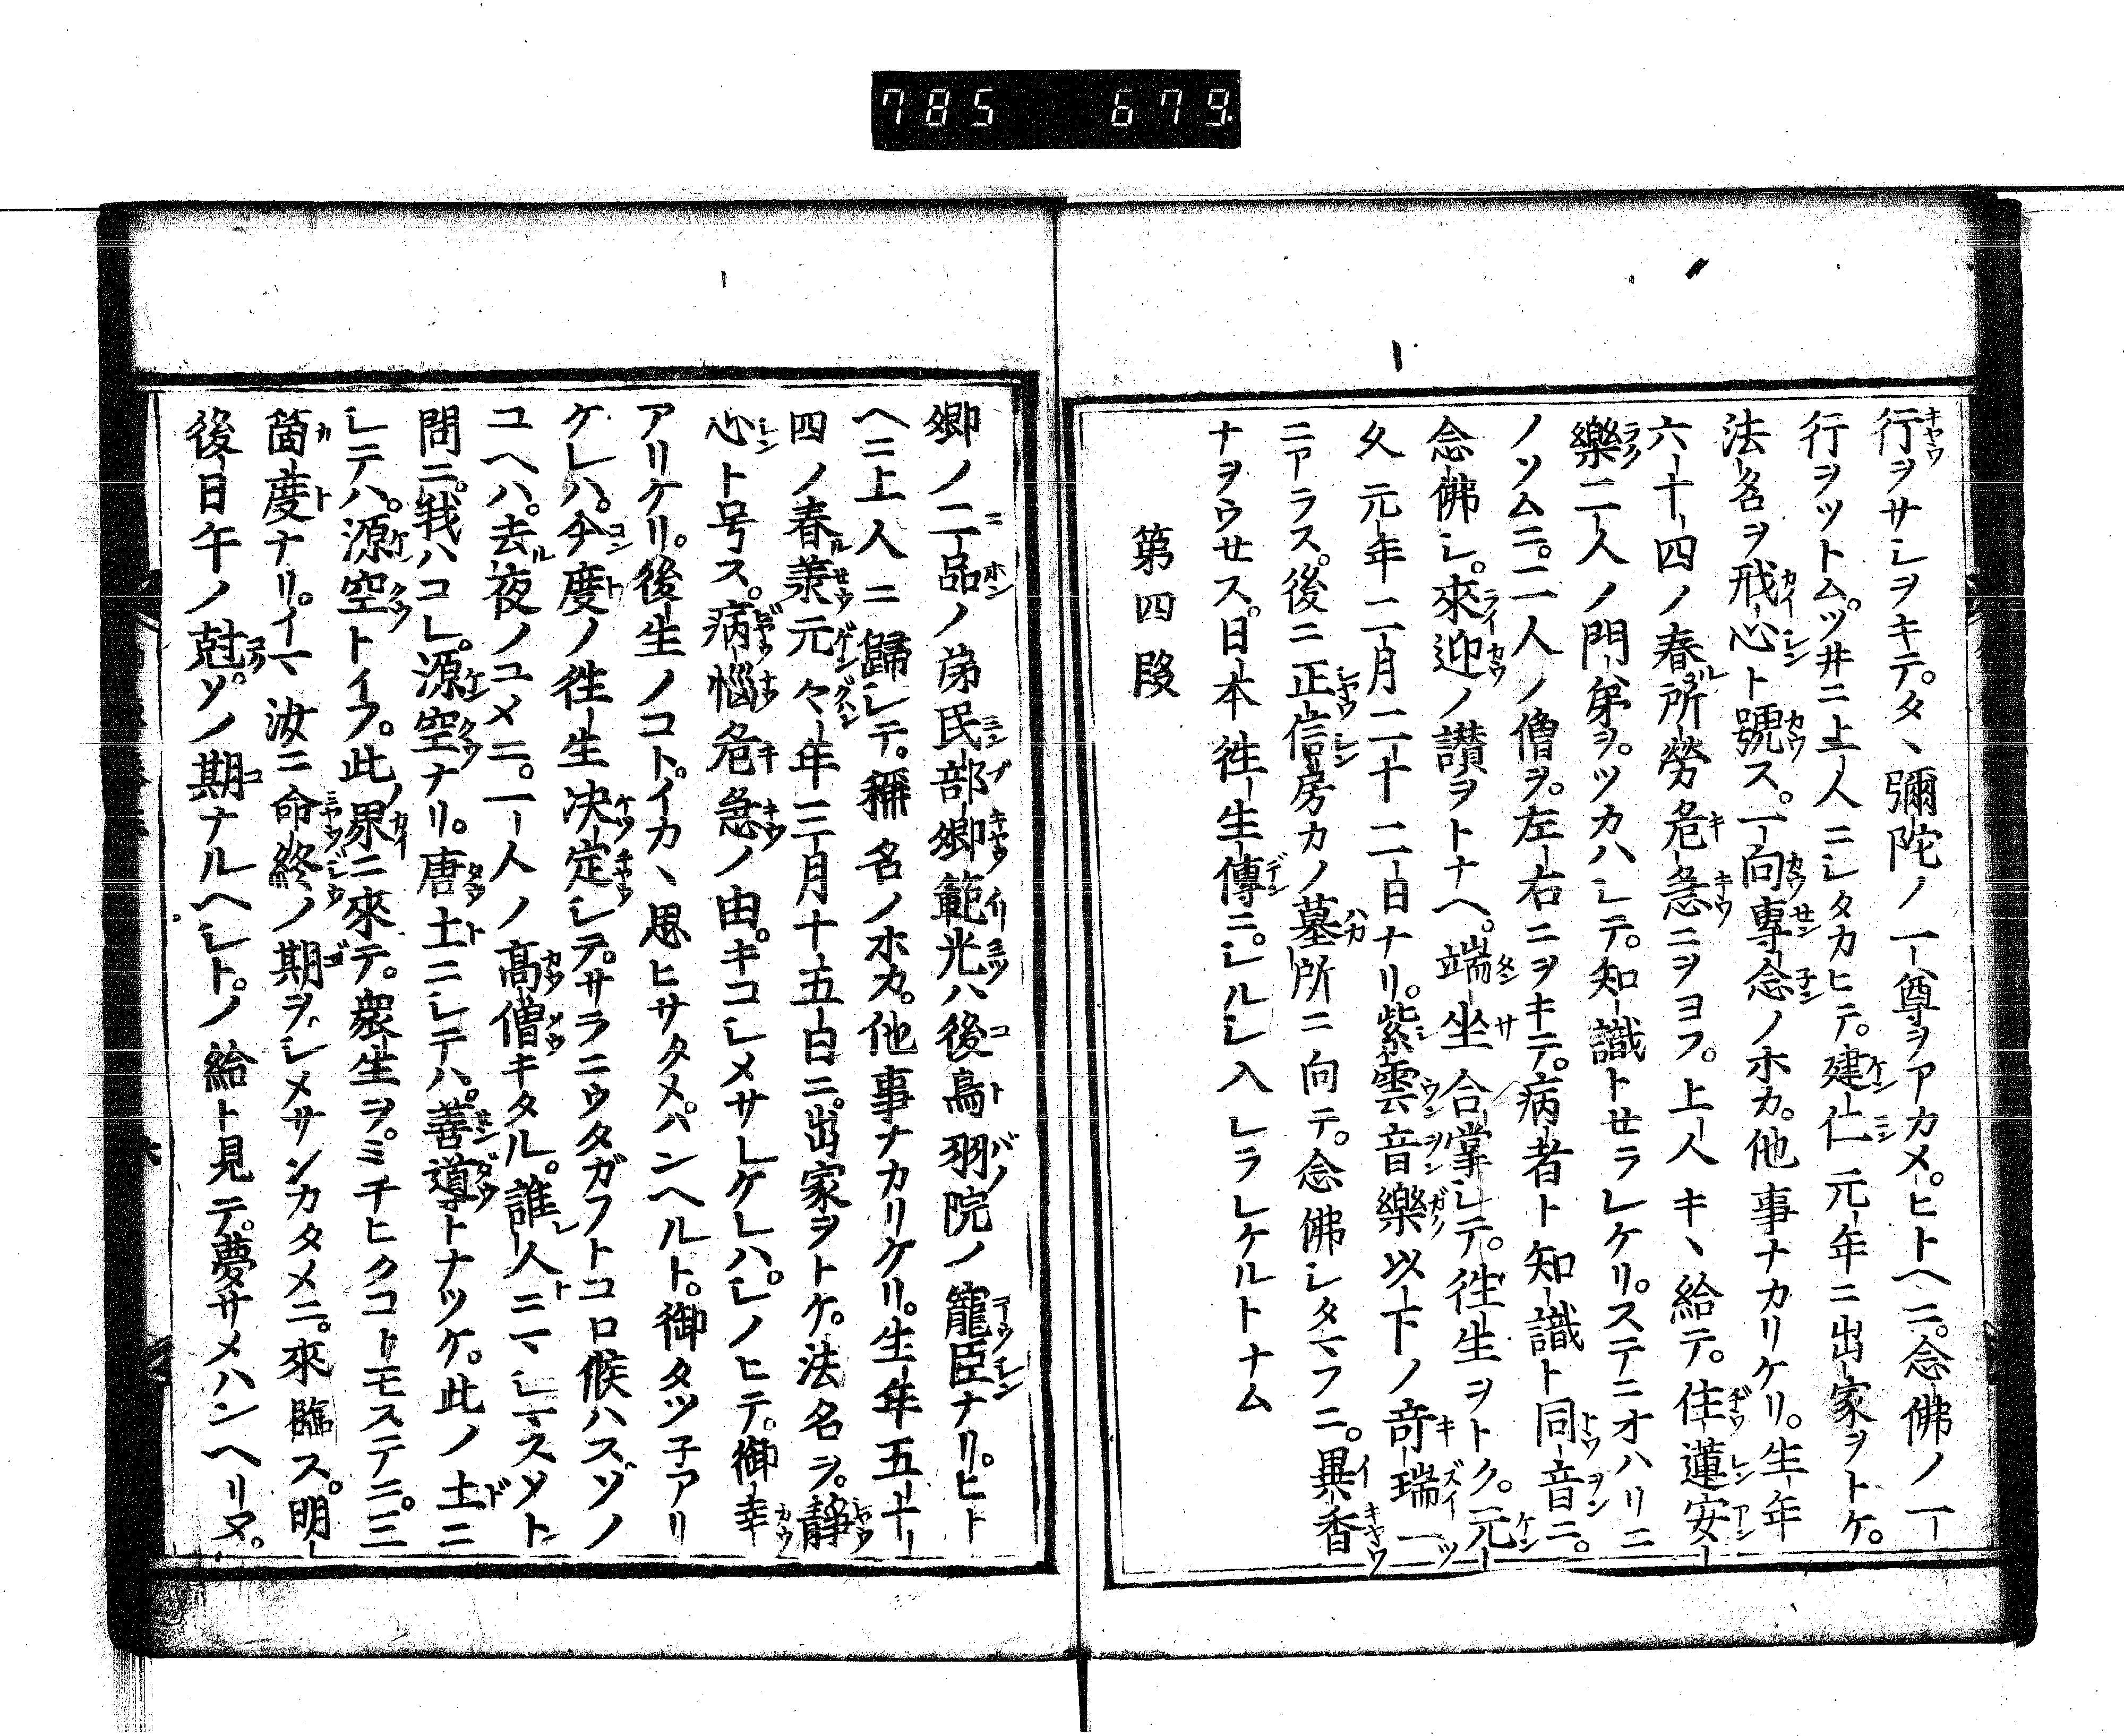 785 679
行ヲサシヲキテ。タヽ彌陀ノ一尊ヲアカメ。ヒトヘニ。念佛ノ一
行ヲツトム。ツ井ニ上人ニシタカヒテ。建仁元年ニ出家ヲトケ。
法名ヲ戒心ト號ス。一向專念ノホカ。他事ナカリケリ。生年
六十四ノ春所勞危急ニヲヨフ。上人キヽ給テ。住蓮安
樂二人ノ門弟ヲ。ツカハシテ。知識トセラレケリ。ステニオハリニ
ノソムニ。二人ノ僧ヲ。左右ニヲキテ。病者ト知識ト同音ニ。
念佛シ。來迎ノ讃ヲトナヘ。端坐合掌シテ。徃生ヲトク。元
久元年二月二十二日ナリ。紫雲音樂以下ノ奇瑞一ツ
ニアラス。後ニ正信房カノ墓所ニ向テ。念佛シタマフニ。異香
ナヲウセス。日本徃生傳ニ。シルシ入レラレケルトナム
第四段
卿ノ二品ノ弟民部卿範光ハ後鳥羽院ノ寵臣ナリ。ヒト
ヘニ上人ニ歸シテ。稱名ノホカ。他事ナカリケリ。生年五十
四ノ春羕元々年三月十五日ニ。出家ヲトケ。法名ヲ。靜
心ト号ス。病惱危急ノ由。キコシメサレケレハ。シノヒテ。御幸
アリケリ。後生ノコト。イカヽ思ヒサタメハンヘルト。御タツ子アリ
ケレハ。今度ノ徃生决定シテ。サラニウタガフトコロ候ハズソノ
ユヘハ。去夜ノユメニ。一人ノ高僧キタル。誰人ニマシマスソト
問ニ。我ハコレ。源空ナリ。唐土ニシテハ。善導トナツケ。此ノ土ニ
シテハ。源空トイフ。此界ニ來テ。衆生ヲ。ミチヒクコトモステニ。三
箇度ナリ。イマ汝ニ命終ノ期ヲ。シメサンカタメニ。來臨ス。明
後日午ノ尅。ソノ期ナルヘシト。ノ給ト見テ。夢サメハンヘリヌ。